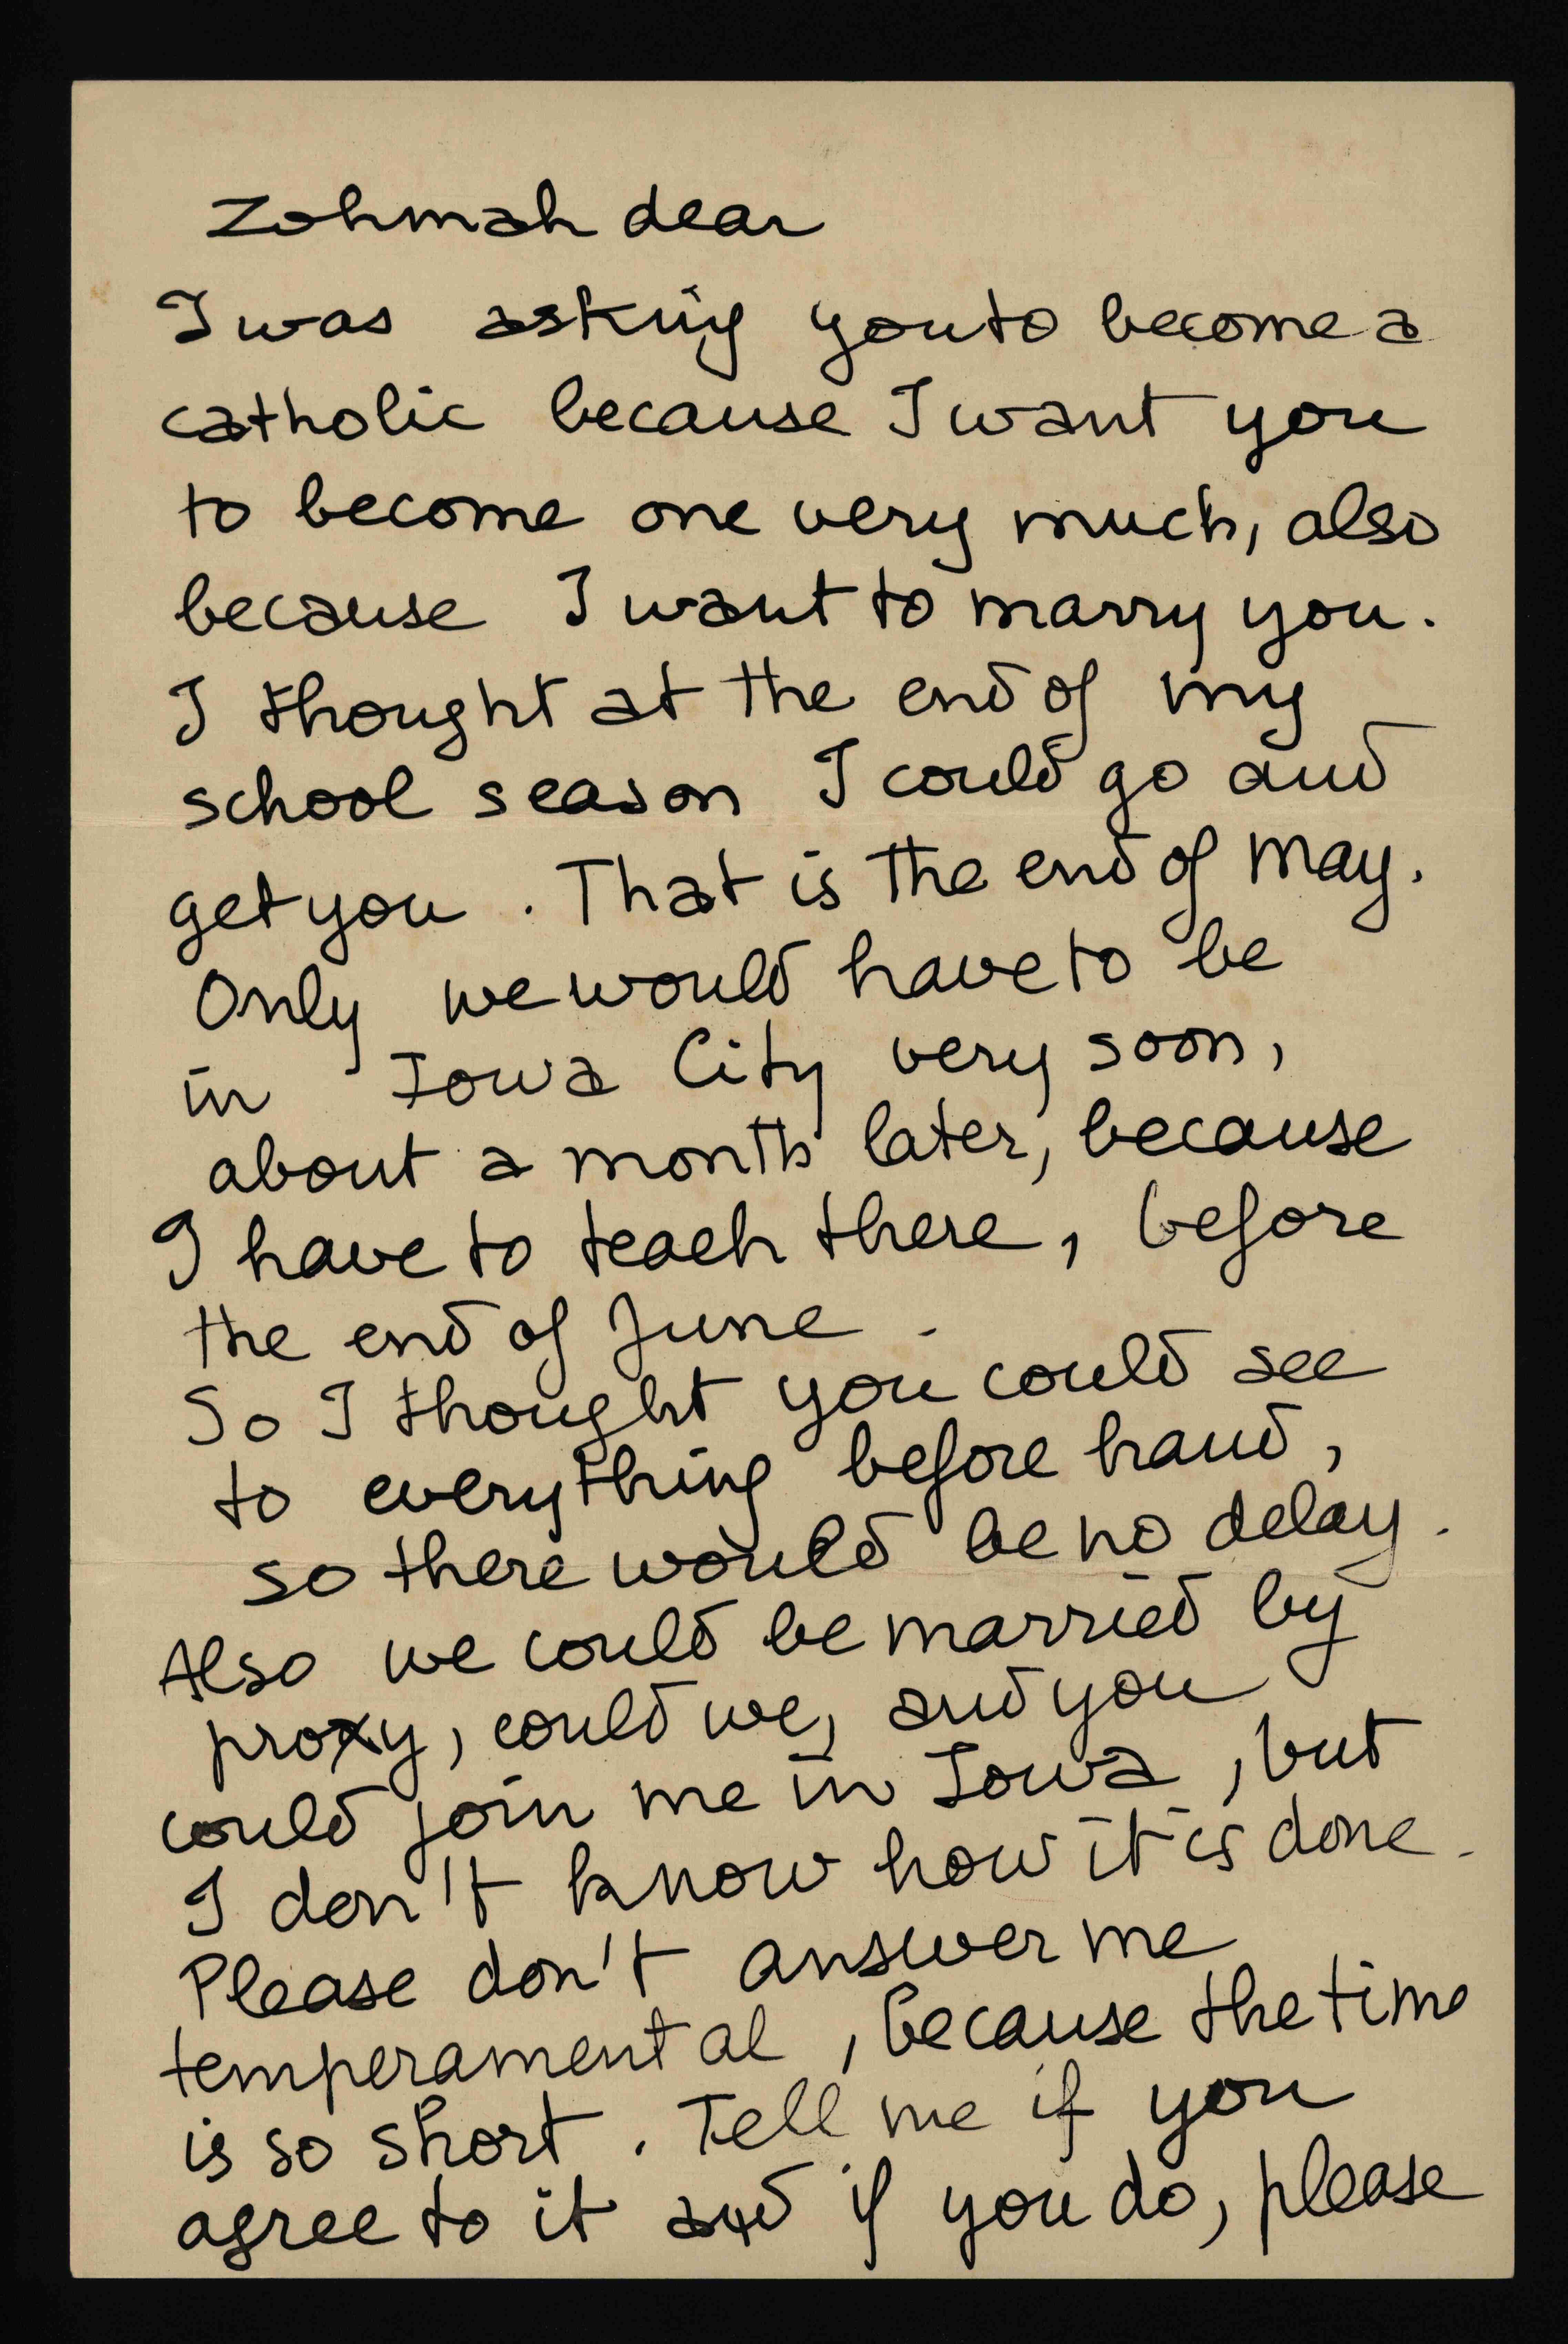 Zohmah dear
I was asking you to become a
catholic because I want you
to become one very much, also
because I want to marry you.
I thought at the end of my
school season I could go and
get you. That is the end of May.
Only we would have to be
in Iowa City very soon,
about a month later, because
I have to teach there, before
the end of June.
So I thought you could see
to everything before hand,
so there would be no delay.
Also we could be married by
proxy, could we, and you
could join me in Iowa, but
I don't know how it is done.
Please don't answer me
temperamental, because the time
is so short. Tell me if you
agree to it and if you do, please